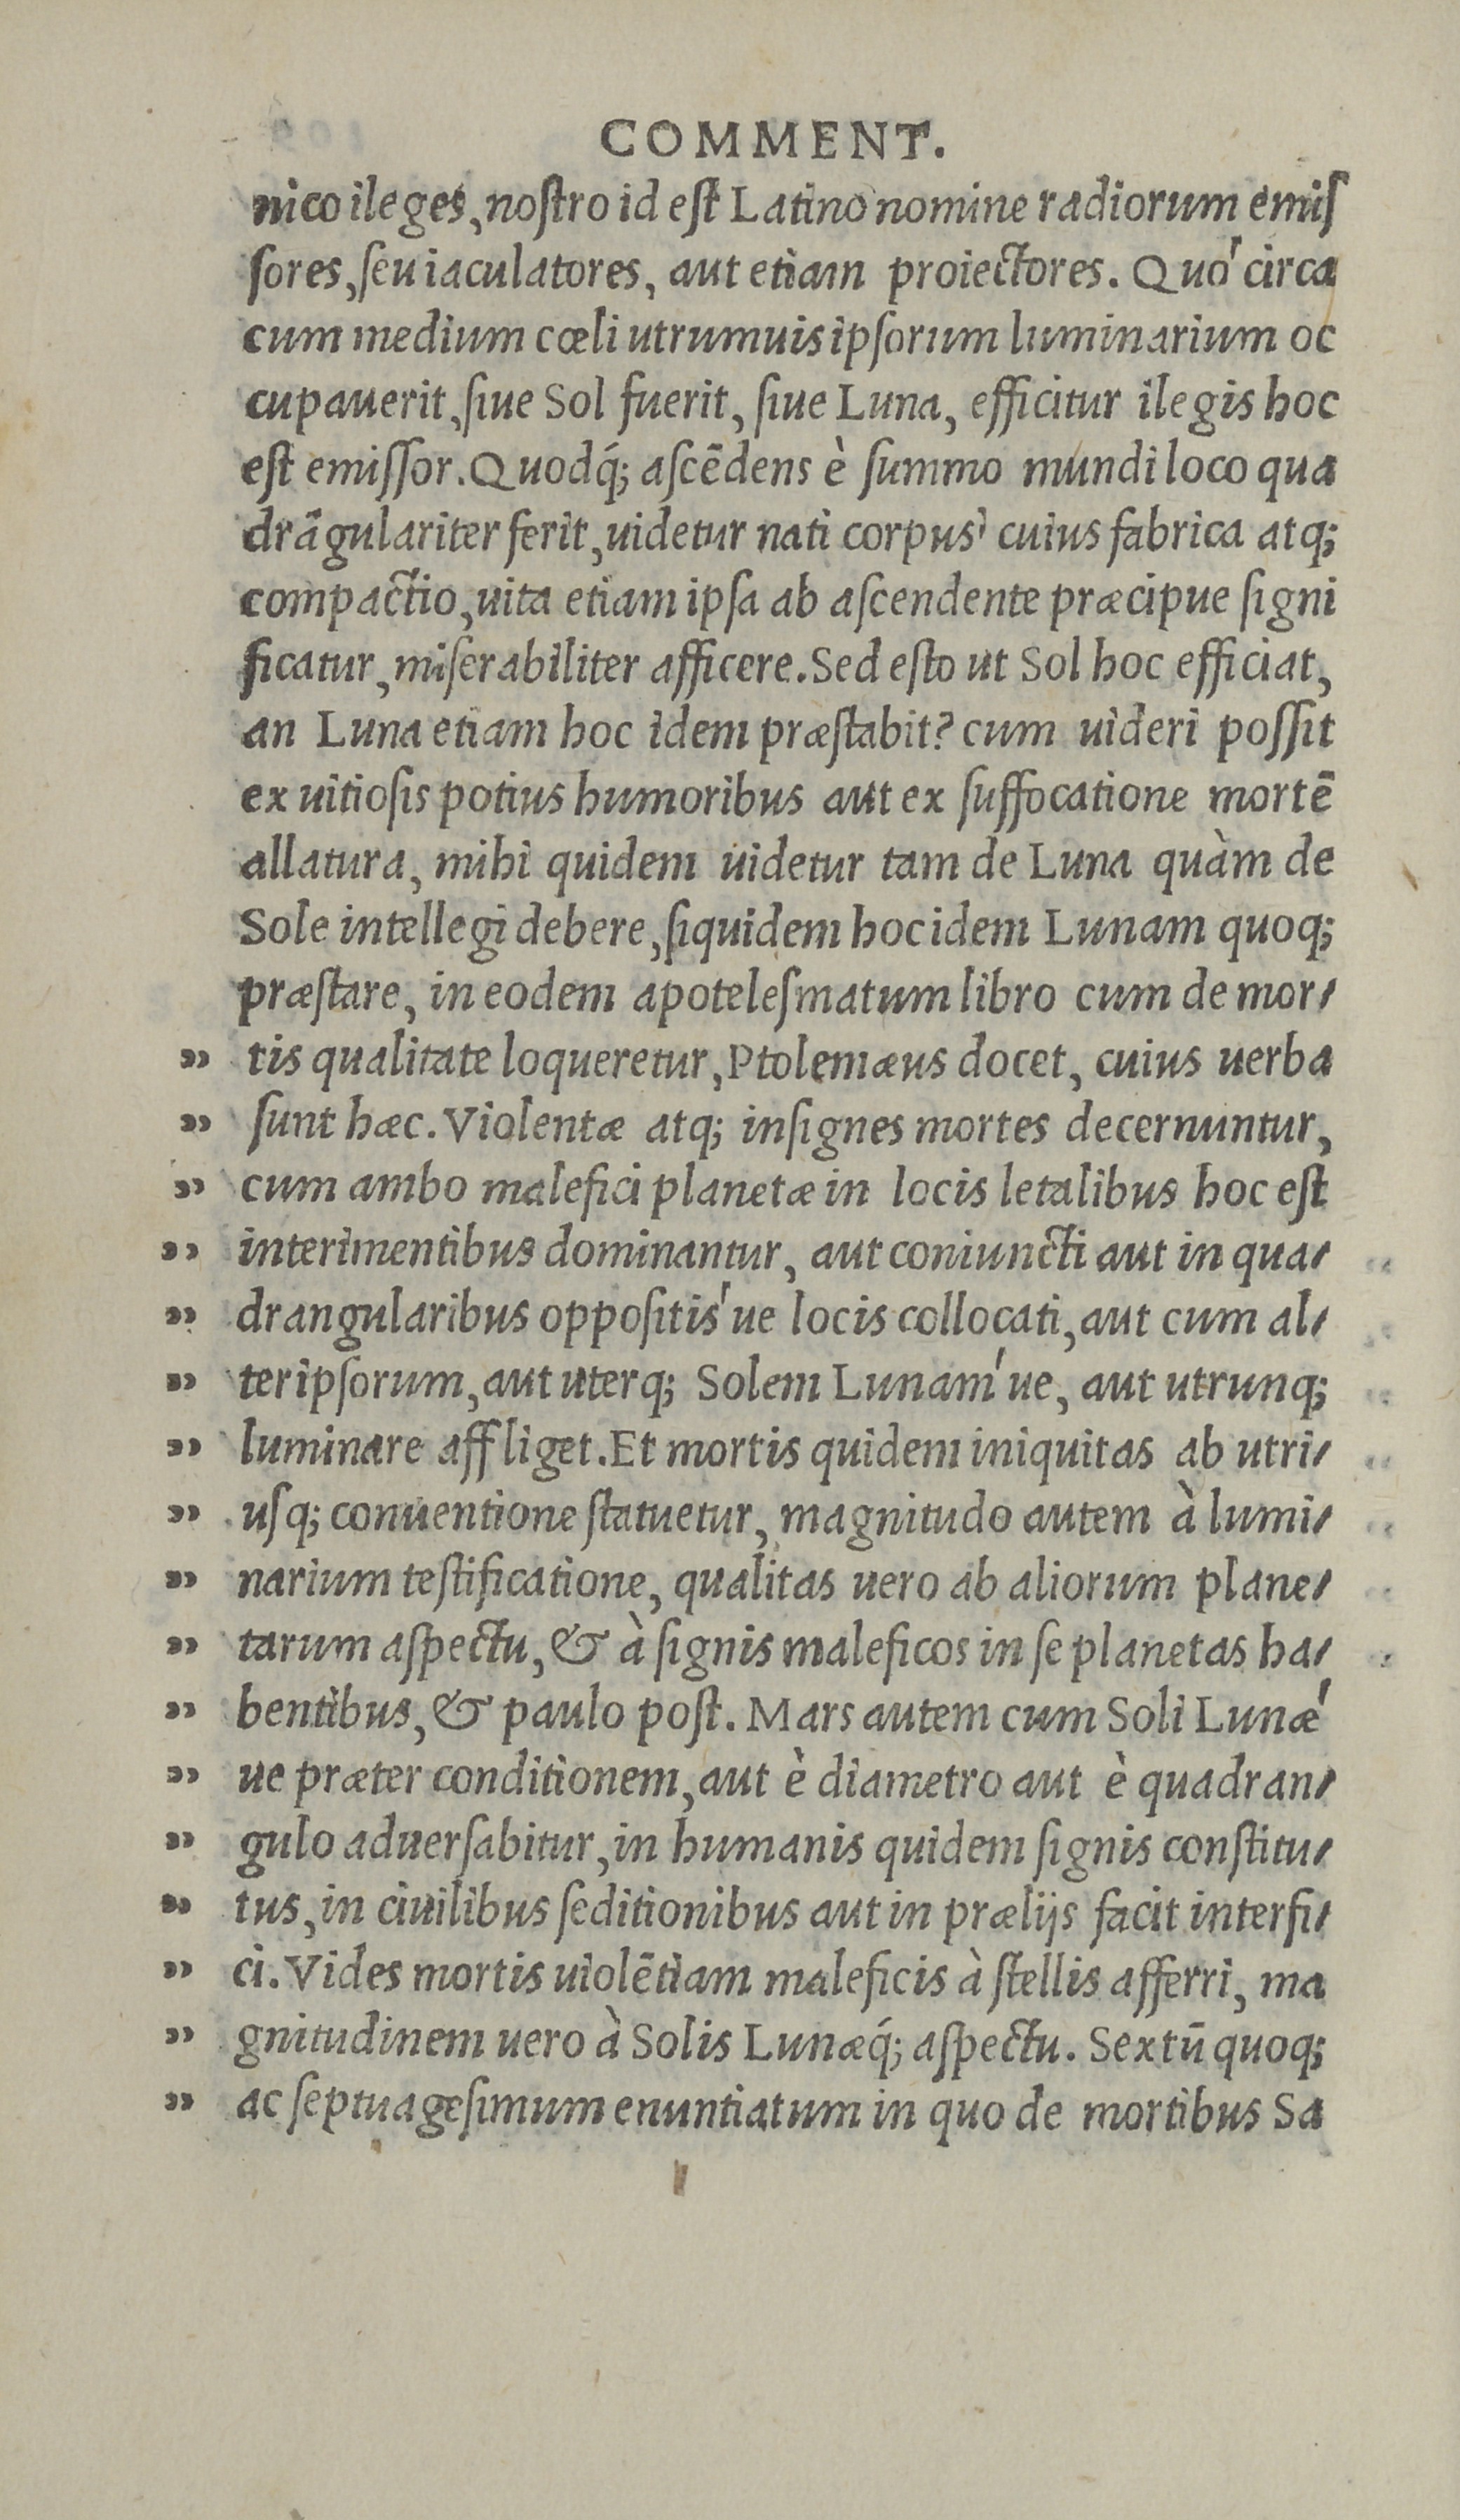 COMMENT.
nico ileges, noſtro id eſt Latino nomine radiorum emiſ
ſores, ſeu iaculatores, aut etiam proiectores. Quo' circa
cum medium cœli utrumuis ipſorum luminarium oc
cupauerit, ſiue Sol fuerit, ſiue Luna, efficitur ilegis hoc
eſt emiſſor. Quodq́; aſcēdens è ſummo mundi loco qua
drāgulariter ferit, uidetur nati corpus' cuius fabrica atq;
compactio, uita etiam ipſa ab aſcendente præcipue ſigni
ficatur, miſerabiliter afficere. Sed eſto ut Sol hoc efficiat,
an Luna etiam hoc idem præſtabit? cum uideri poſſit
ex uitioſis potius humoribus aut ex ſuffocatione mortē
allatura, mihi quidem uidetur tam de Luna quàm de
Sole intellegi debere, ſiquidem hoc idem Lunam quoq;
præſtare, in eodem apoteleſmatum libro cum de mor/
" tis qualitate loqueretur, Ptolemæus docet, cuius uerba
" ſunt hæc. Violentæ atq; inſignes mortes decernuntur,
" cum ambo malefici planetæ in locis letalibus hoc eſt
" interimentibus dominantur, aut coniuncti aut in qua/
" drangularibus oppoſitis' ue locis collocati, aut cum al/
" ter ipſorum, aut uterq; Solem Lunam' ue, aut utrunq;
" luminare affliget. Et mortis quidem iniquitas ab utri/
" uſq; conuentione ſtatuetur, magnitudo autem à lumi/
" narium teſtificatione, qualitas uero ab aliorum plane/
" tarum aſpectu, & à ſignis maleficos in ſe planetas ha/
" bentibus, & paulo poſt. Mars autem cum Soli Lunæ'
" ue præter conditionem, aut è diametro aut è quadran/
" gulo aduerſabitur, in humanis quidem ſignis conſtitu/
" tus, in ciuilibus ſeditionibus aut in prælijs facit interfi/
" ci. Vides mortis uiolētiam maleficis à ſtellis afferri, ma
" gnitudinem uero à Solis Lunæq́; aſpectu. Sextū quoq;
" ac ſeptuageſimum enuntiatum in quo de mortibus Sa